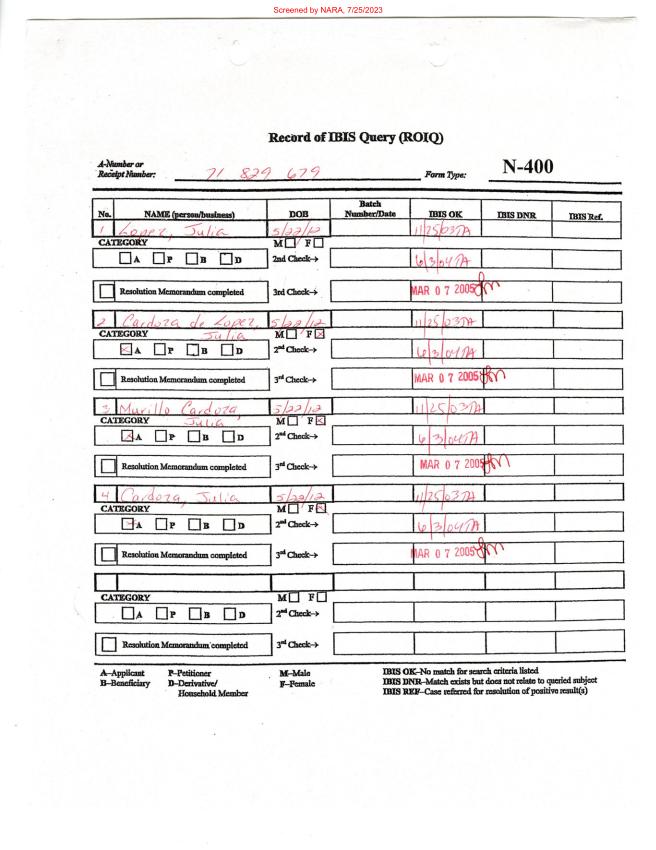 Screened by NARA, 7/25/2023
Record of IBIS Query (ROIQ)
A-Number or
Receipt Number: 71 829 679 Form Type: N-400
No. NAME (person/business) DOB Batch Number/Date IBIS OK IBIS DNR IBIS Ref.
1 Lopez, Julia 5/22/12 11/25/03TA
CATEGORY M F
A P B D 2nd Check→ 6/3/04TA
Resolution Memorandum completed 3rd Check→ MAR 07 2005
2 Cardoza de Lopez, 5/22/12 11/25/03TA
CATEGORY Julia M F
A P B D 2nd Check→ 6/3/04TA
Resolution Memorandum completed 3rd Check→ MAR 07 2005
3 Murillo Cardoza, 5/22/12 11/25/03TA
CATEGORY Julia M F
A P B D 2nd Check→ 6/3/04TA
Resolution Memorandum completed 3rd Check→ MAR 07 2005
4 Cardoza, Julia 5/22/12 11/25/03TA
CATEGORY M F
A P B D 2nd Check→ 6/3/04TA
Resolution Memorandum completed 3rd Check→ MAR 07 2005
CATEGORY M F
A P B D 2nd Check→
Resolution Memorandum completed 3rd Check→
A–Applicant P–Petitioner M–Male IBIS OK–No match for search criteria listed
B–Beneficiary D–Derivative/ F–Female IBIS DNR–Match exists but does not relate to queried subject
Household Member IBIS REF–Case referred for resolution of positive result(s)